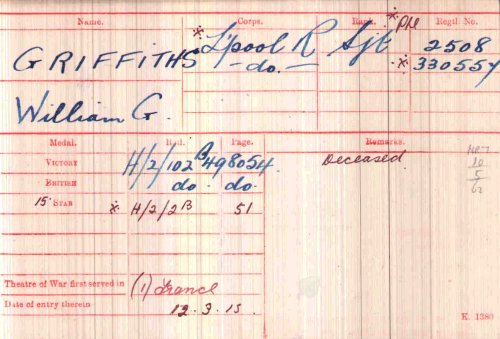 Name. Corps. Rank. Regtl. No.
GRIFFITHS * L'pool R Sjt * Pte 2508
— do. — * 330557
William G.
Medal. Roll. Page. Remarks.
VICTORY H/2/102 B 49 8054. Deceased
BRITISH do do.
15 STAR * H/2/2 B 51
Theatre of War first served in (1) France
Date of entry therein 12.3.15
K. 1380